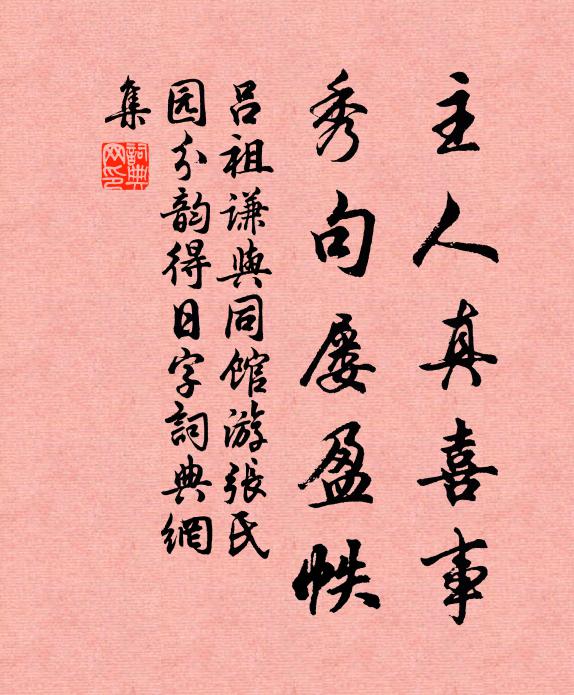 主人真喜事
秀句屡盈帙
吕祖谦與同馆游張氏
园分韵得日字詞典網
集
詞典
网印